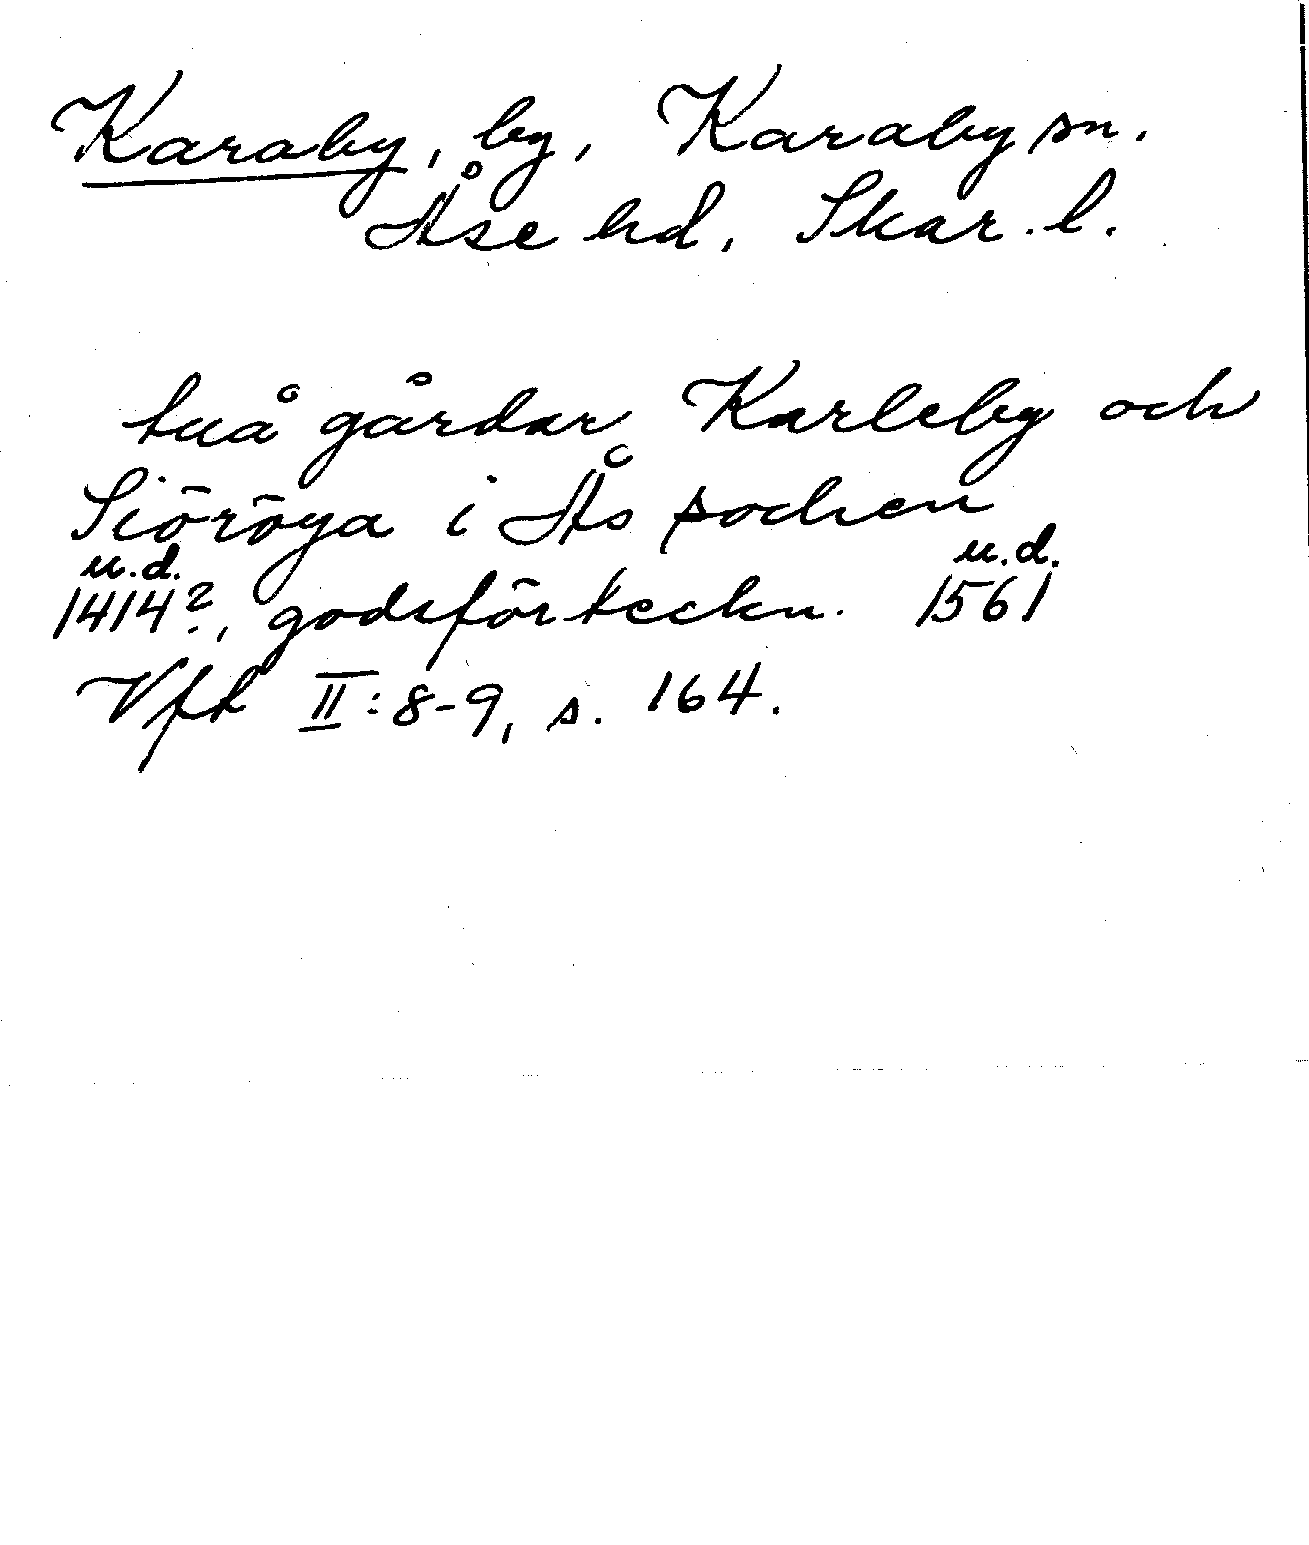 Karaby, by, Karaby sn.
Åse hd, Skar. l.
tuå gårdar Karleby och
Siöröya i Ås socken
u.d. u.d.
1414?, godsförteckn. 1561
Vft II:8-9, s. 164.